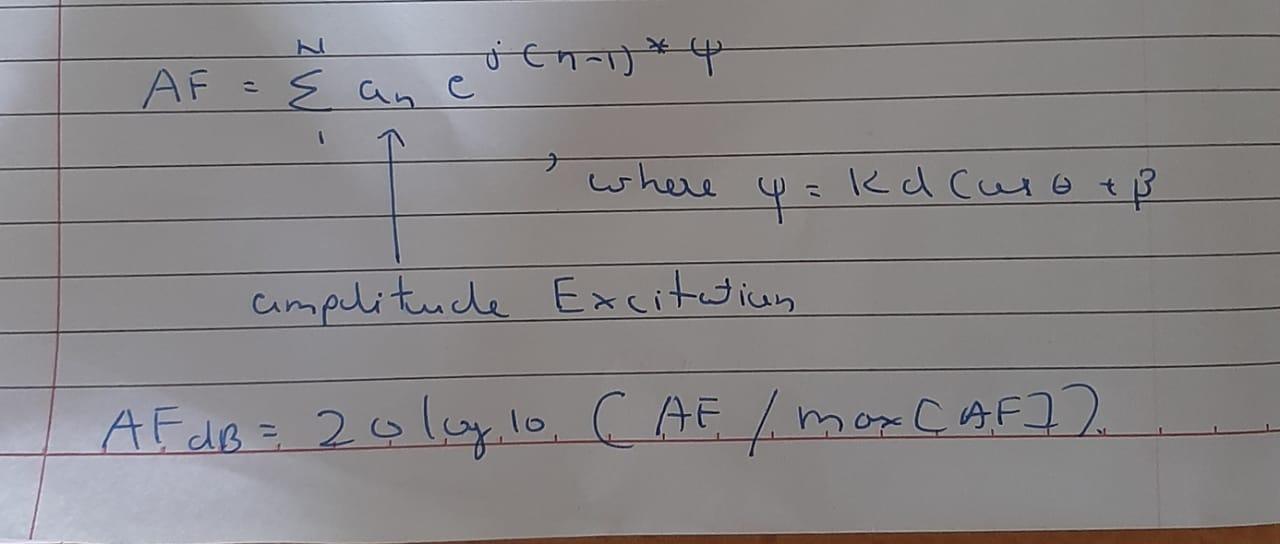 N
AF = Σ an e j(n-1)*ψ
1
, where ψ = Kd Cos θ + β
amplitude Excitation
AFdB = 20 log 10 (AF / max(AF))